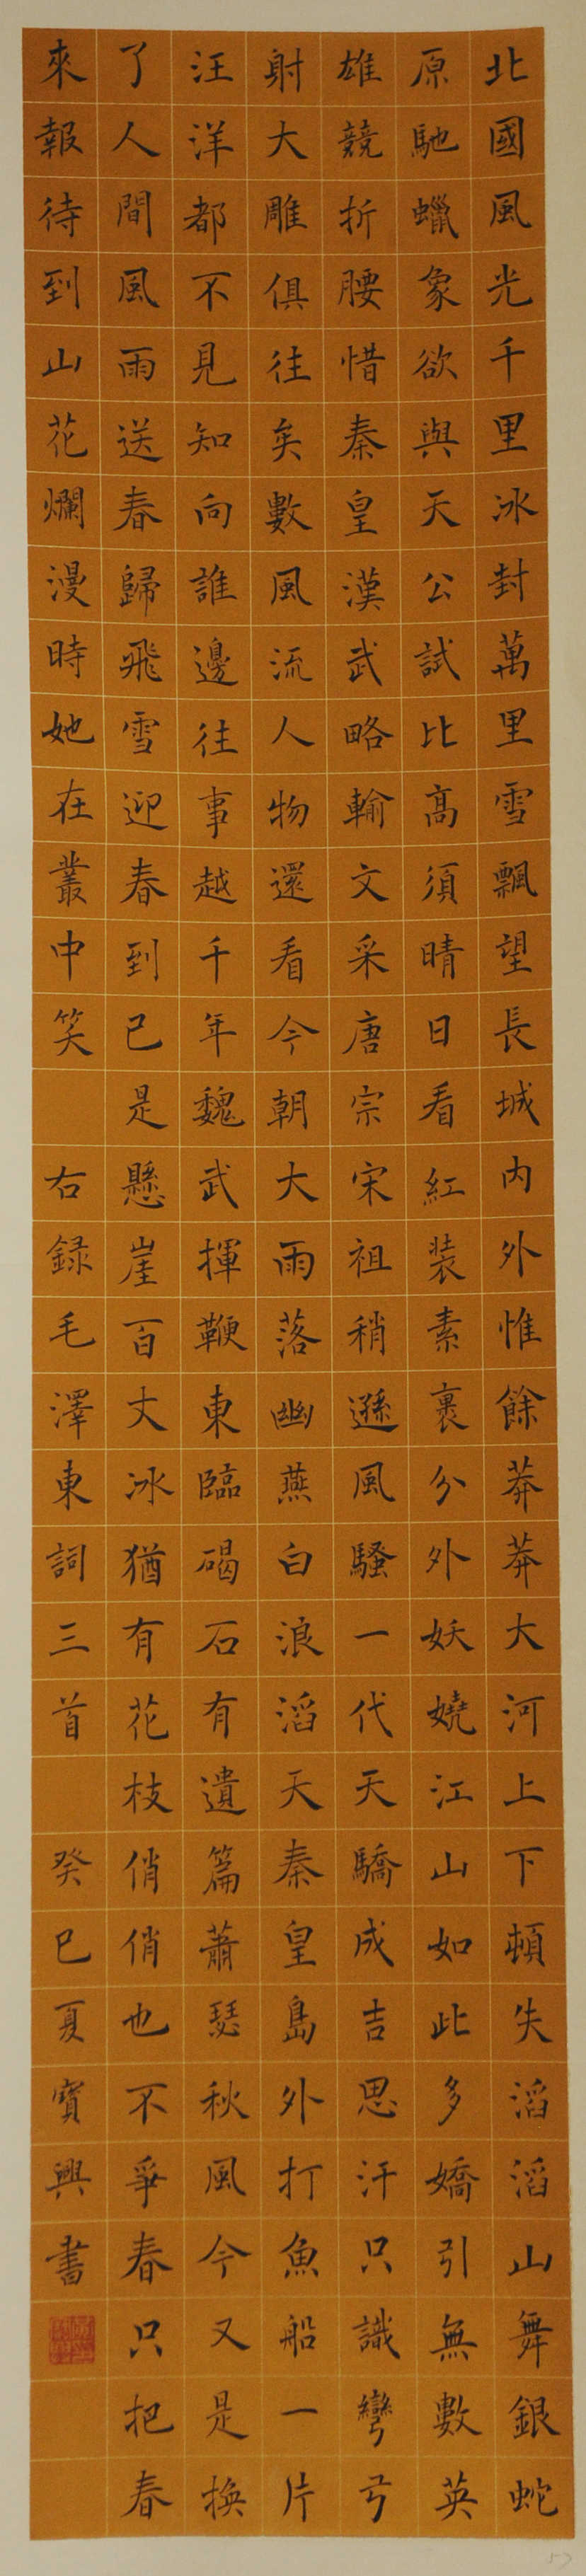 北國風光千里冰封萬里雪飄望長城内外惟餘莽莽大河上下頓失滔滔山舞銀蛇
原馳蠟象欲與天公試比髙須晴日看紅装素裹分外妖嬈江山如此多嬌引無數英
雄競折腰惜秦皇漢武略輸文采唐宗宋祖稍遜風騷一代天驕成吉思汗只識彎弓
射大雕俱往矣數風流人物還看今朝大雨落幽燕白浪滔天秦皇島外打魚船一片
汪洋都不見知向誰邊往事越千年魏武揮鞭東臨碣石有遺篇蕭瑟秋風今又是換
了人間風雨送春歸飛雪迎春到已是懸崖百丈冰猶有花枝俏俏也不爭春只把春
來報待到山花爛漫時她在叢中笑 右録毛澤東詞三首 癸巳夏寶興書